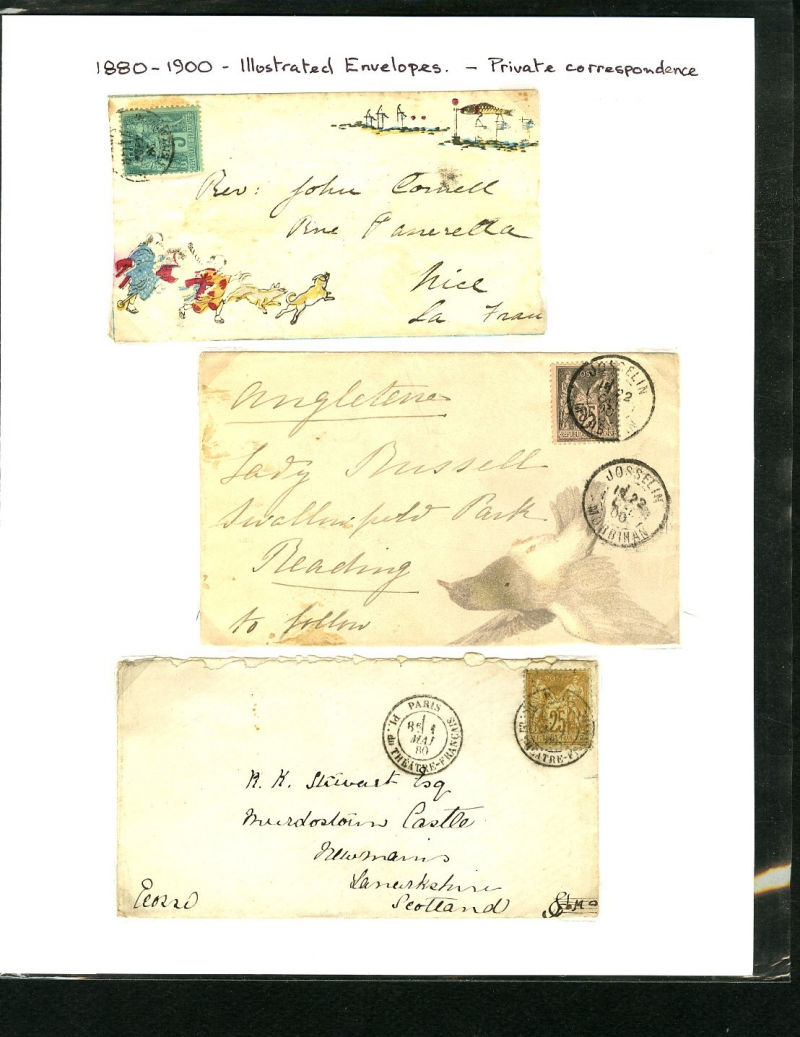 1880-1900 - Illustrated Envelopes. - Private correspondence
5
Rev: John Cornell
Rue
Nice
La Fran
Angleterre
JOSSELIN
22
Lady Russell
JOSSELIN
22
MORBIHAN
Swallowfield Park
Reading
to follow
25
PARIS
MAI
80
PL. DU THÉATRE-FRANCAIS
R. K. Stewart Esq
Murdostoun Castle
Newmains
Lanarkshire
Scotland